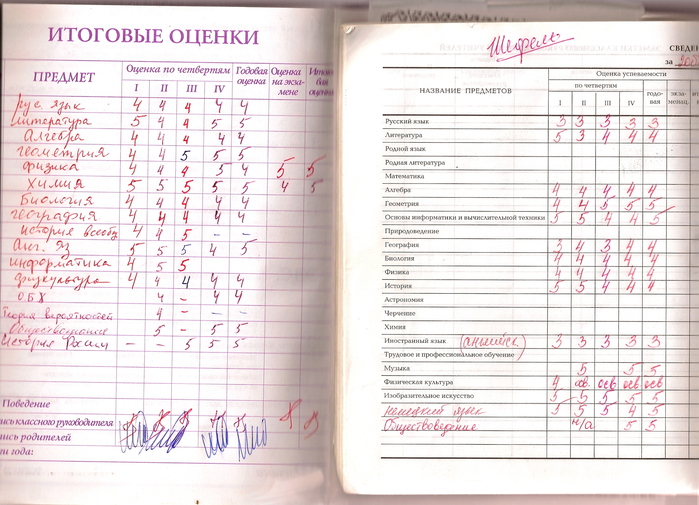 ИТОГОВЫЕ ОЦЕНКИ
ПРЕДМЕТ Оценка по четвертям Годовая оценка Оценка на экзамене
I II III IV
рус. язык 4 4 4 4 4
литература 5 4 4 5 5
Алгебра 4 4 4 4 4
геометрия 4 4 5 5 5
физика 4 4 4 5 4 5 5
химия 5 5 5 5 5 4 5
Биология 4 4 4 4 4
география 4 4 4 4 4
история всеобщ 4 4 5 - -
Анг. яз 5 5 5 4 5
информатика 4 5 5
физкультура 4 4 4 4 4
ОБЖ 4 - 4 4
Теория вероятностей 4 - -
Обществознание 5 - 5 5
История России - - 5 5 5
Поведение
классного руководителя
родителей
года:
Шефель
СВЕДЕН
за 200
НАЗВАНИЕ ПРЕДМЕТОВ
Оценка успеваемости
по четвертям годовая экзаменац.
I II III IV
Русский язык 3 3 3 3 3
Литература 5 3 4 4 4
Родной язык
Родная литература
Математика
Алгебра 4 4 4 4 4
Геометрия 4 4 5 5 5
Основы информатики и вычислительной техники 5 5 4 4 5
Природоведение
География 3 4 3 4 4
Биология 4 4 4 4 4
Физика 4 4 4 4 4
История 5 5 4 4 4
Астрономия
Черчение
Химия
Иностранный язык (английск) 3 3 3 3 3
Трудовое и профессиональное обучение
Музыка 5 5 5
Физическая культура 4 осв. осв осв осв
Изобразительное искусство 5 5 5 5 5
немецкий язык 5 5 5 4 5
Обществоведение н/а 5 5